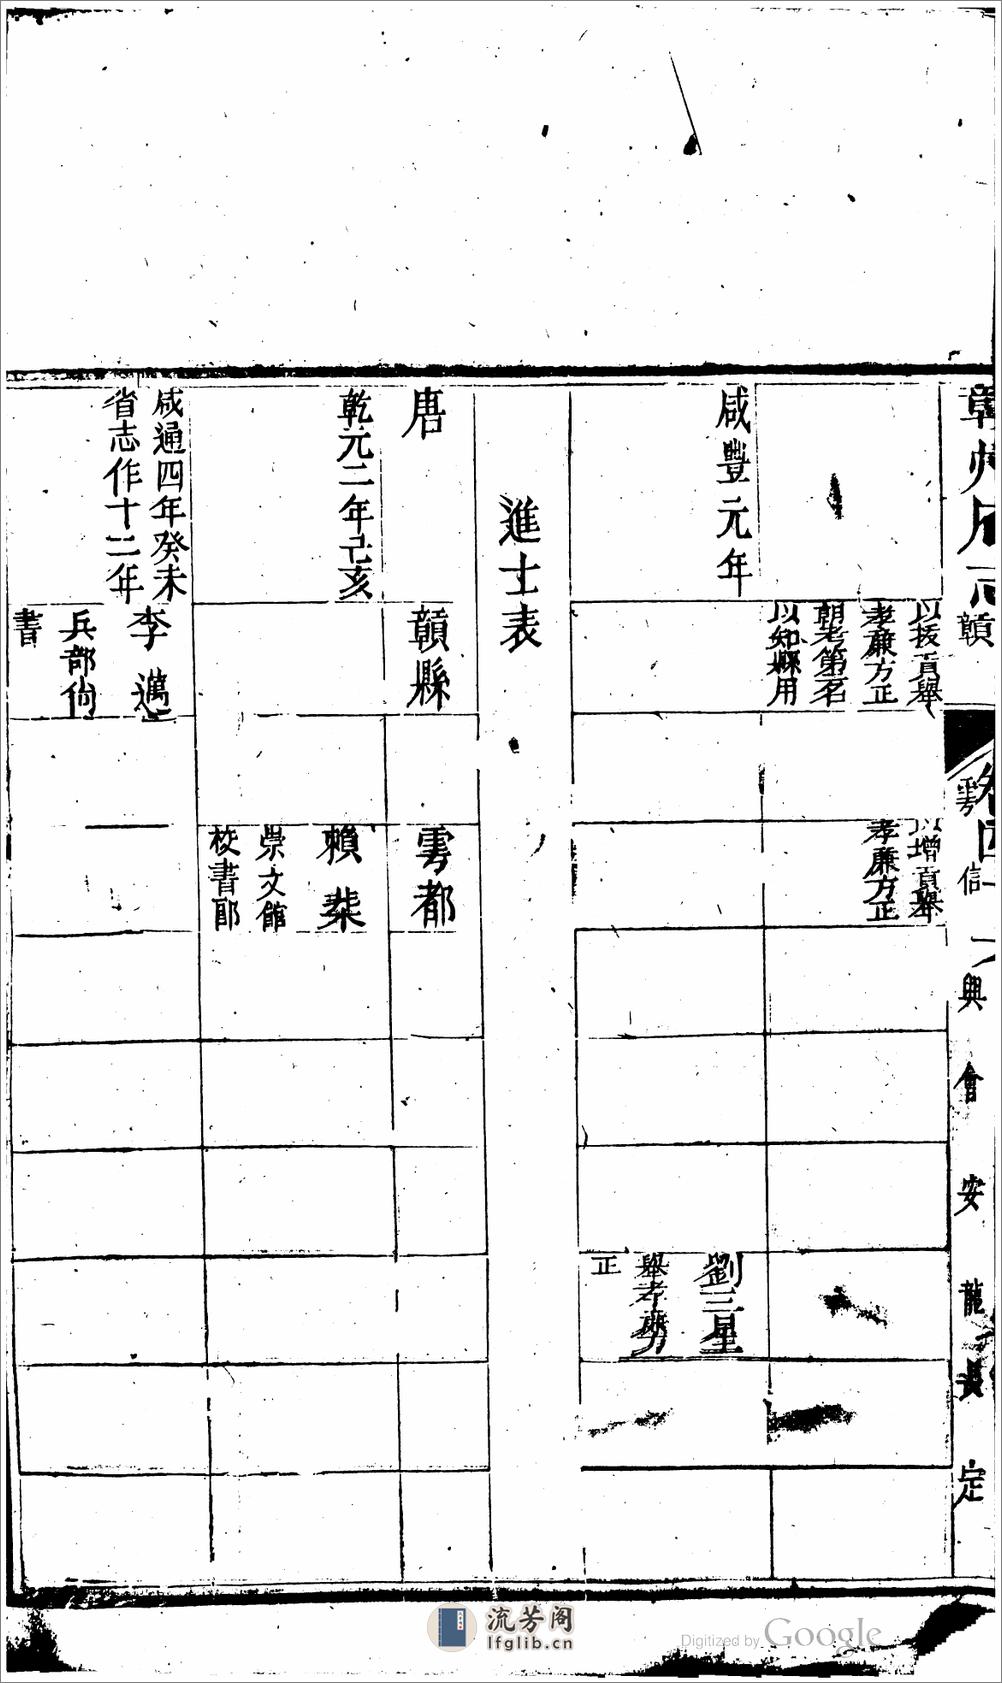 贛州府志
卷四
贛
雩
信
興
會
安
龍
長
定
以拔貢舉
孝廉方正
朝考第一名
以知縣用
以增貢舉
孝廉方正
咸豐元年
劉三星
舉孝廉方
正
進士表
唐
贛縣
雩都
乾元二年己亥
賴棐
崇文館
校書郎
咸通四年癸未
省志作十二年
李邁
兵部尚
書
流芳阁
lfglib.cn
Digitized by Google